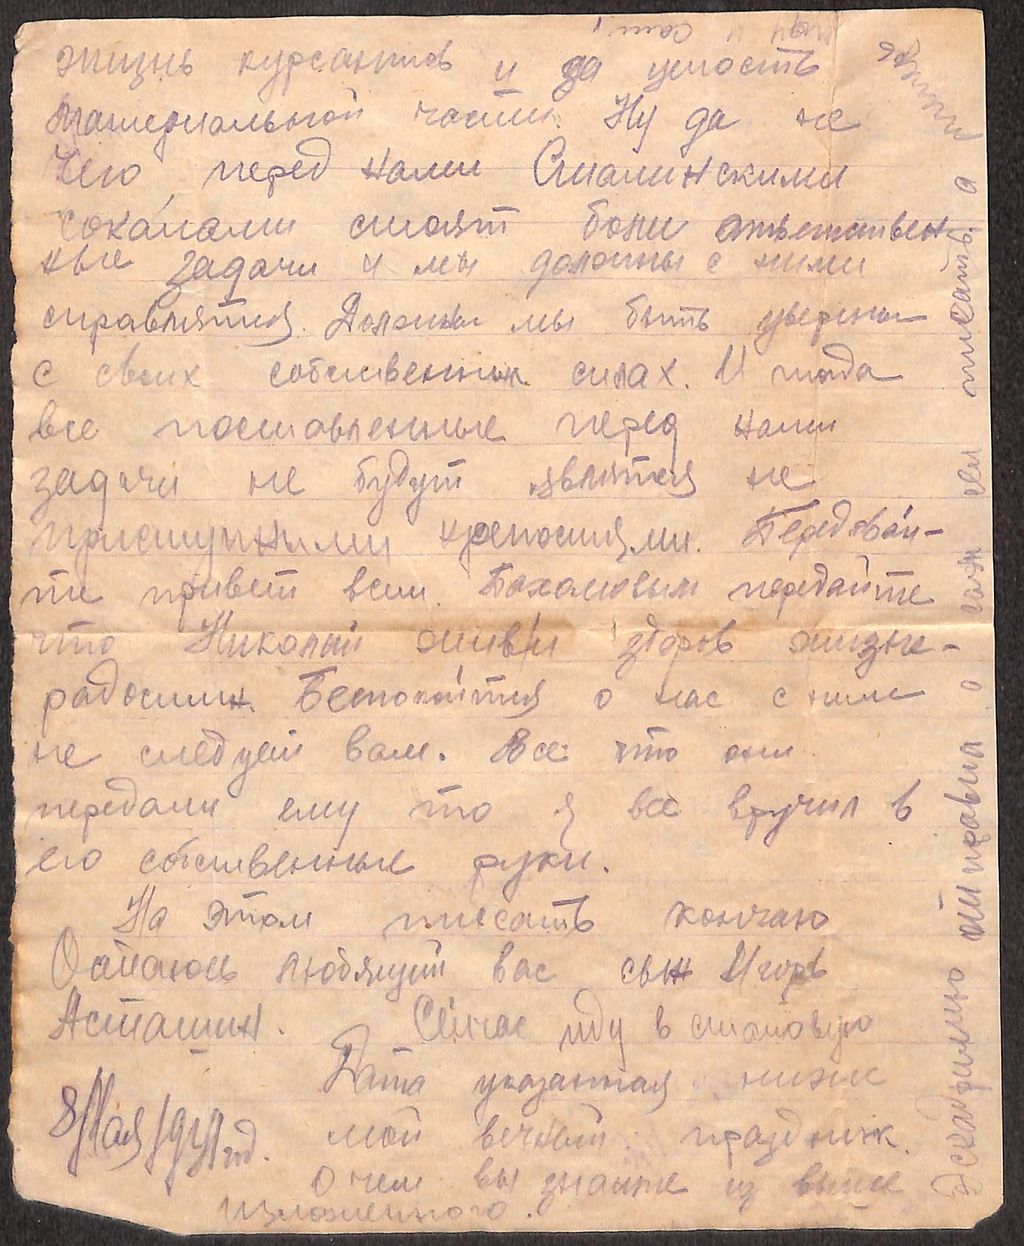 жизнь курсантов и за целость
материальной части. Ну да не
чего перед нами Сталинскими
соколами стоят боли ответствен
ные задачи и мы должны с ними
справлятся. Должны мы быть уверены
с своих собственных силах. И тогда
все поставленные перед нами
задачи не будут являтся не
приступными крепостями. Передовай-
те привет всем. Бахаловым передайте
что Николай жив и здоров жизне-
радостин. Беспокоится о нас с ним
не следует вам. Все что они
передали ему то я все вручил в
его собственные руки.
На этом писать кончаю
Остаюсь любящий вас сын Игорь
Асташин. Сейчас иду в столовую
Дата указанная ниже
мой вечный праздник.
8/Мая/1941 год.
о чем вы знаите из выше
изложенного.
Эскадрилию отправил о том ей писать, а